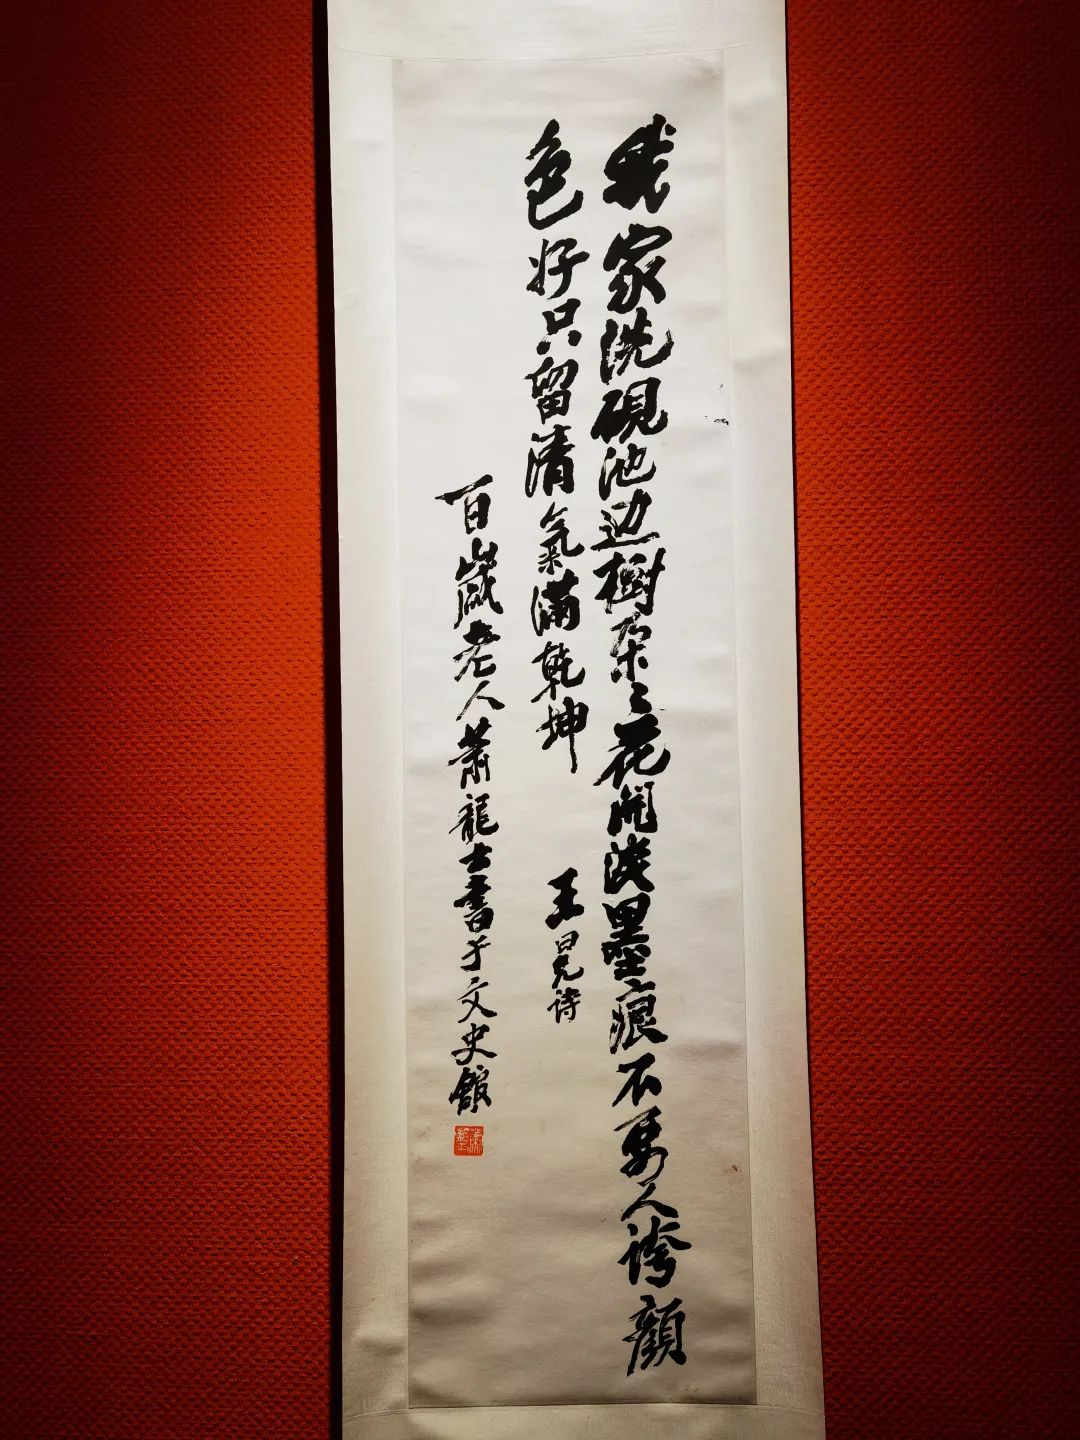 我家洗硯池边樹朶〻花開淡墨痕不要人誇顔
色好只留清氣滿乾坤
王冕诗
百歲老人蕭龍士書于文史館